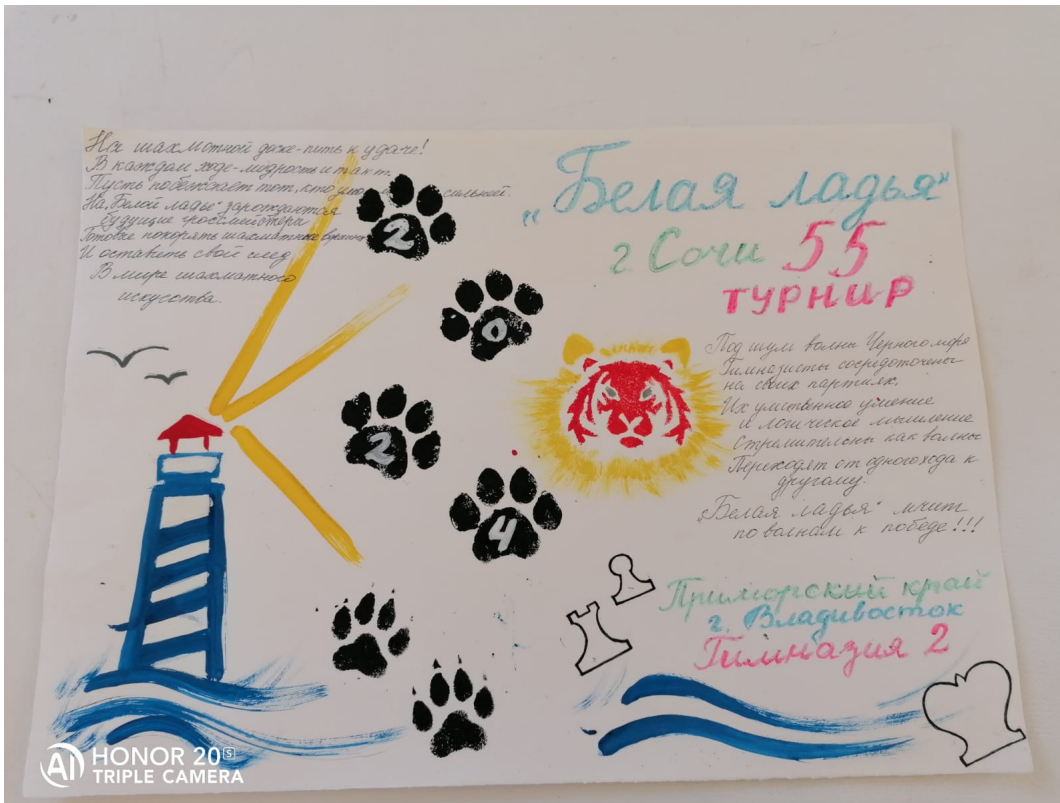 На шахмотной доске-пить к удаче!
В каждом ходе-мудрость и такт.
Пусть побеждает тот, кто сильней.
На „Белой ладье" зарождаются
будущие гроссмейстеры
Готовые покорять шахматные
И оставить свой след
В мире шахматного
искусства.
2
0
2
4
„Белая ладья"
г Сочи 55
турнир
Под шум волны Черного моря
Гимназисты сосредоточены
на своих партиях,
Их умственное умение
и логическое мышление
Стремительны как волны
Переходят от одного хода к
другому.
„Белая ладья" мчит
по волнам к победе!!!
Приморский край
г. Владивосток
Гимназия 2
AI HONOR 20S
TRIPLE CAMERA